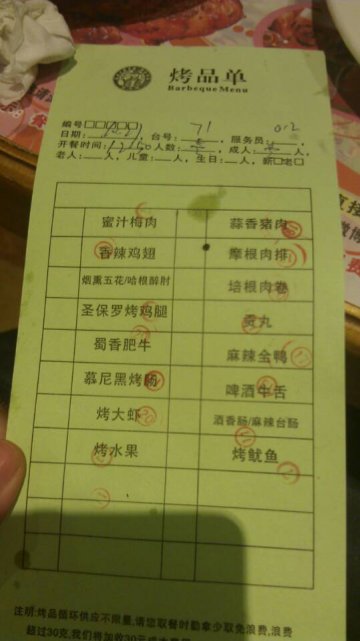 烤品单
Barbeque Menu
编号□□□□□
日期: 台号: 71 服务员: 012
开餐时间: 人数: 人, 成人: 人,
老人: 人, 儿童: 人, 生日: 人, 新□老□
蜜汁梅肉 蒜香猪肉
香辣鸡翅 摩根肉排
烟熏五花/哈根醉肘 培根肉卷
圣保罗烤鸡腿 贡丸
蜀香肥牛 麻辣全鸭
慕尼黑烤肠 啤酒牛舌
烤大虾 酒香肠/麻辣台肠
烤水果 烤鱿鱼
注明:烤品循环供应不限量,请您取餐时勤拿少取免浪费,浪费
超过30克,我们将加收30元